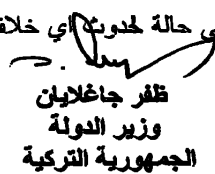 حالة لحدوث أي
ظفر جاغلايان
وزير الدولة
الجمهورية التركية